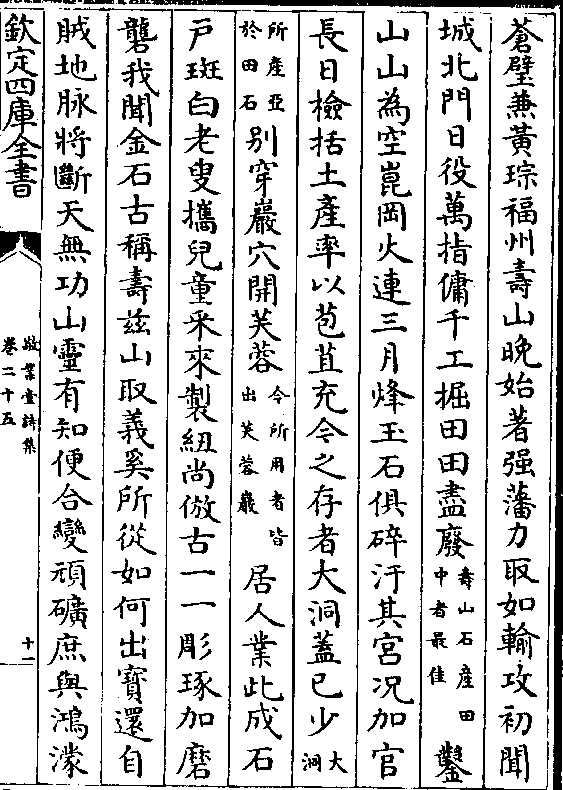 蒼璧兼黃琮福州壽山晚始著强藩力取如輸攻初聞
城北門日役萬指傭千工掘田田盡廢壽山石產田中者最佳鑿
山山為空崑岡火連三月烽玉石俱碎汙其宮况加官
長日檢括土產率以苞苴充今之存者大洞蓋已少大洞
所產亞於田石别穿巖穴開芙蓉今所用者皆出芙蓉巖居人業此成石
戸斑白老叟攜兒童采來製紐尚倣古一一彫琢加磨
礱我聞金石古稱壽兹山取義奚所從如何出寶還自
賊地脉將斷天無功山靈有知便合變頑礦庶與鴻濛
欽定四庫全書
敬業堂詩集
卷二十五
十一